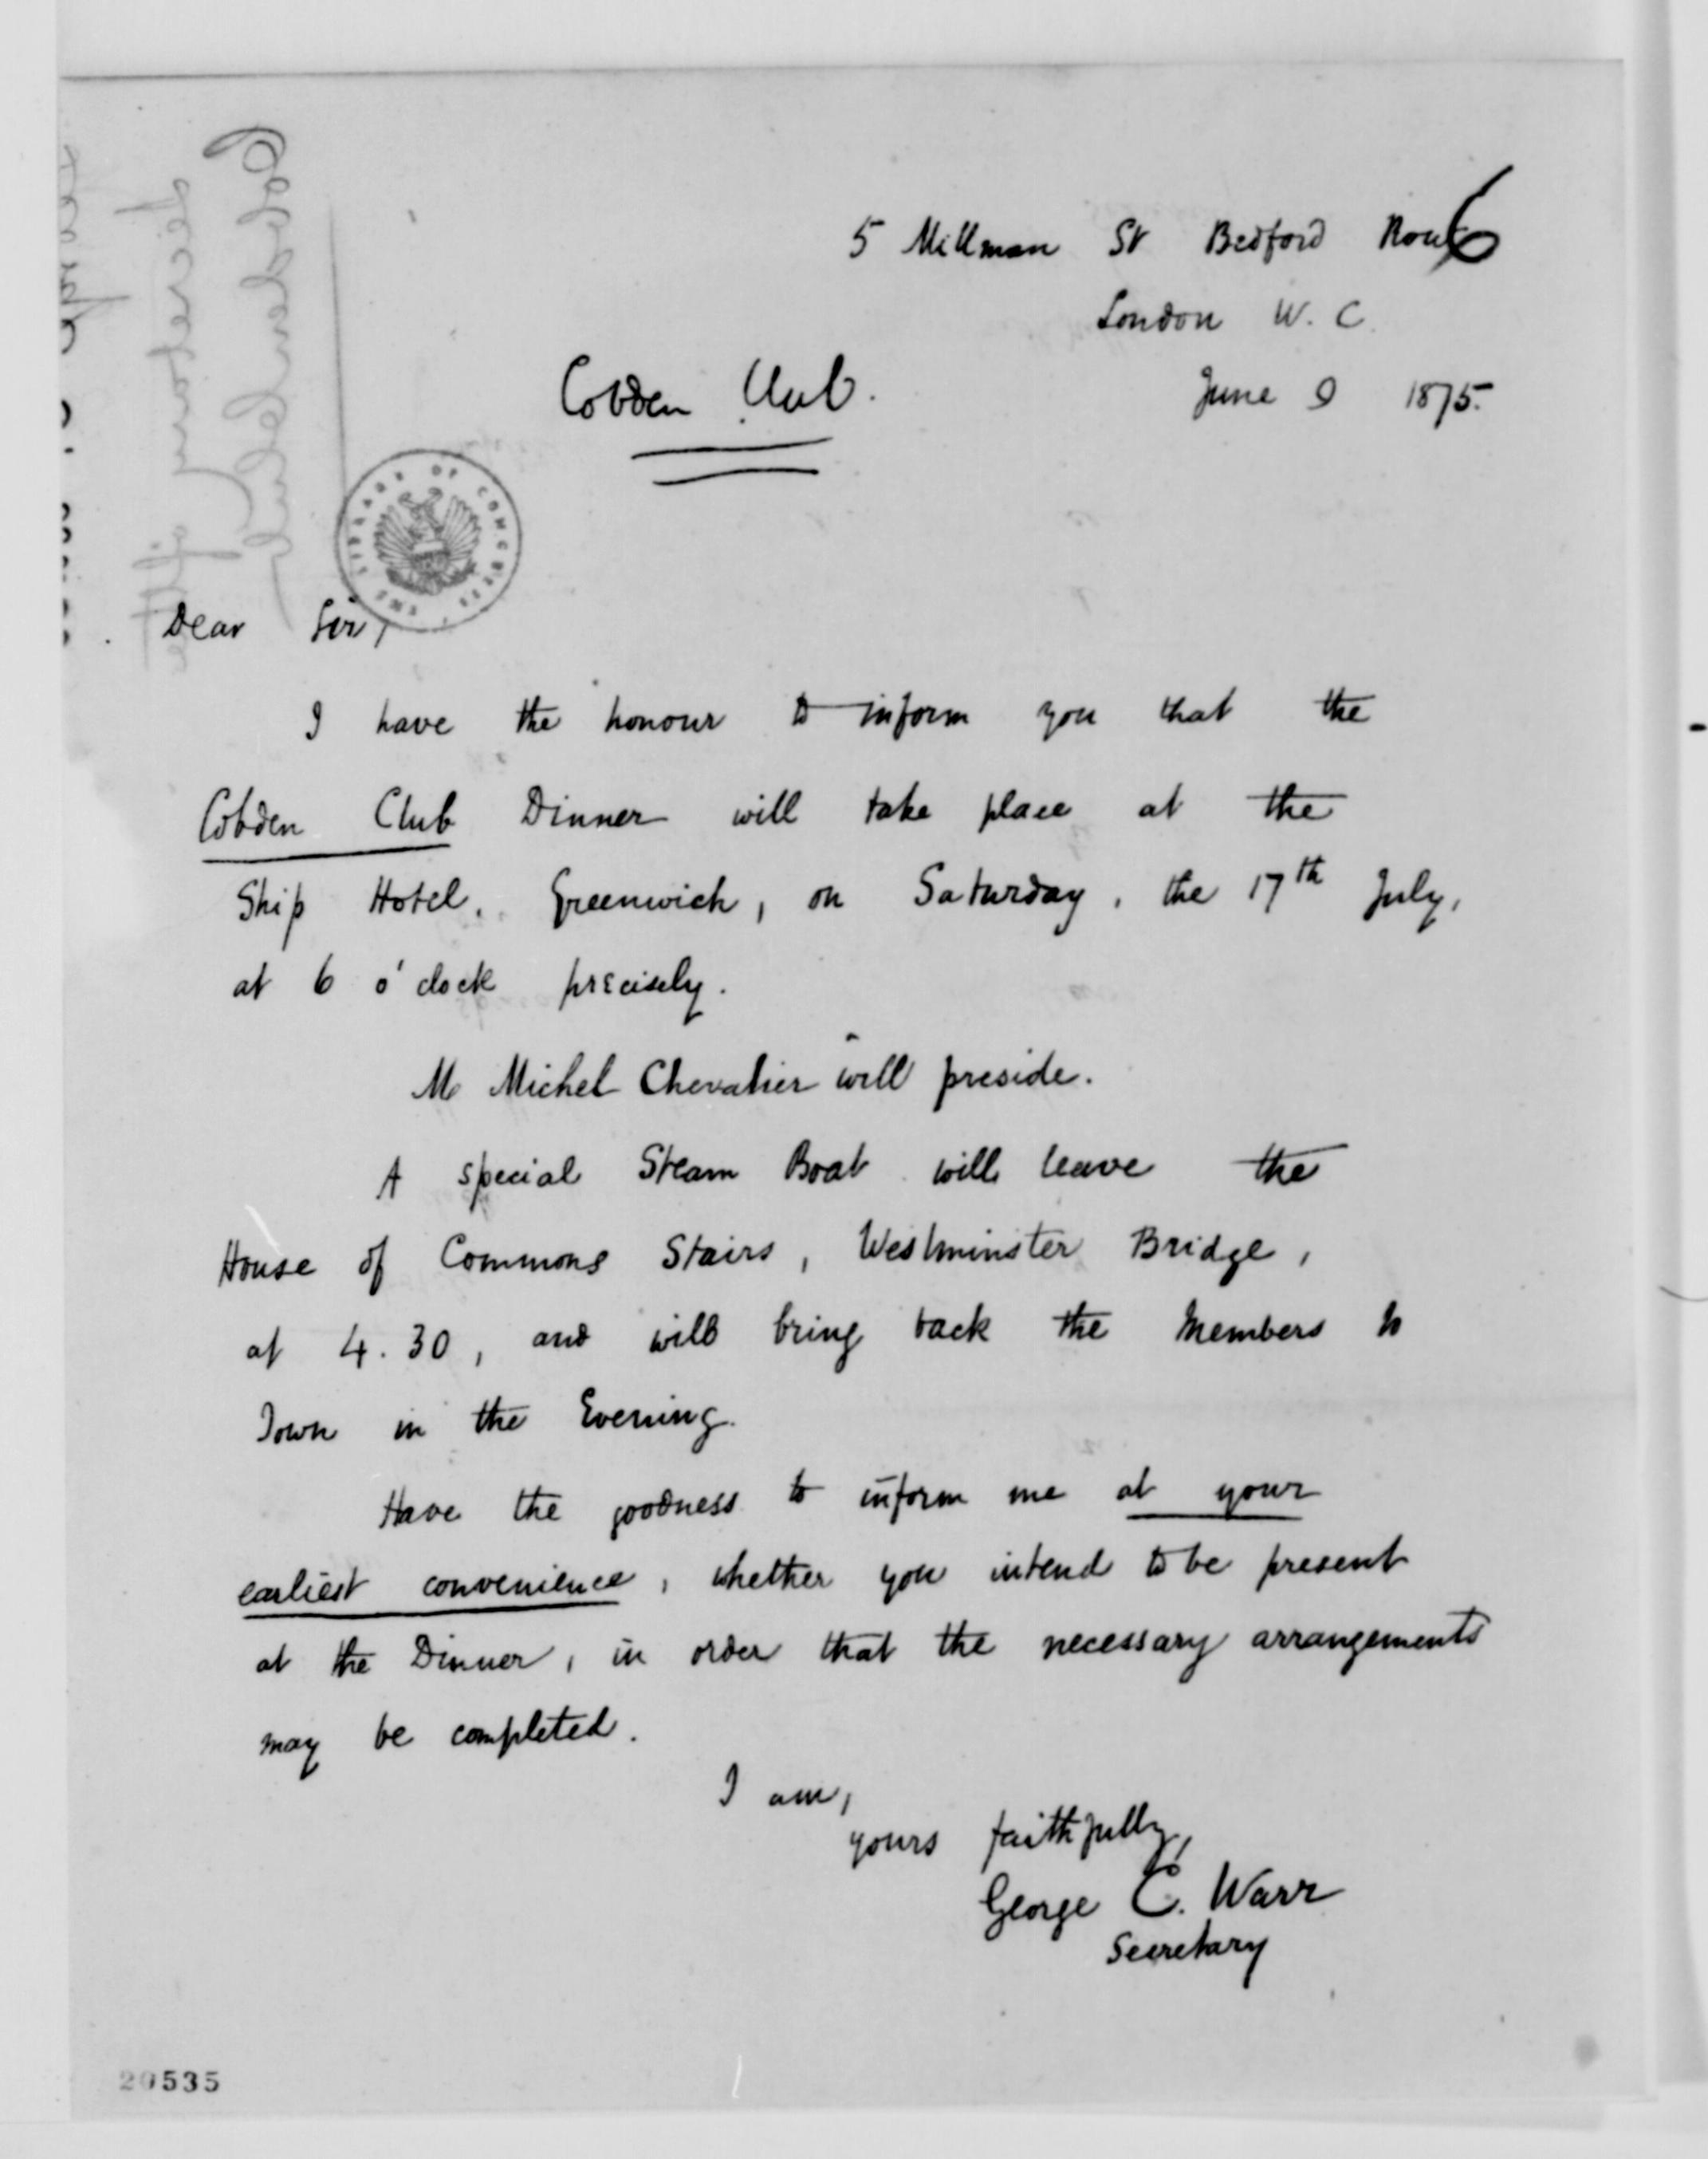 6
5 Millman St Bedford Row
London W. C.
June 9 1875.
Cobden Club.
THE LIBRARY OF CONGRESS
Dear Sir,
I have the honour to inform you that the
Cobden Club Dinner will take place at the
Ship Hotel, Greenwich, on Saturday, the 17th July,
at 6 o'clock precisely.
M. Michel Chevalier will preside.
A special Steam Boat will leave the
House of Commons Stairs, Westminster Bridge,
at 4.30, and will bring back the Members to
Town in the Evening.
Have the goodness to inform me at your
earliest convenience, whether you intend to be present
at the Dinner, in order that the necessary arrangements
may be completed.
I am,
yours faithfully,
George C. Warr
Secretary
20535